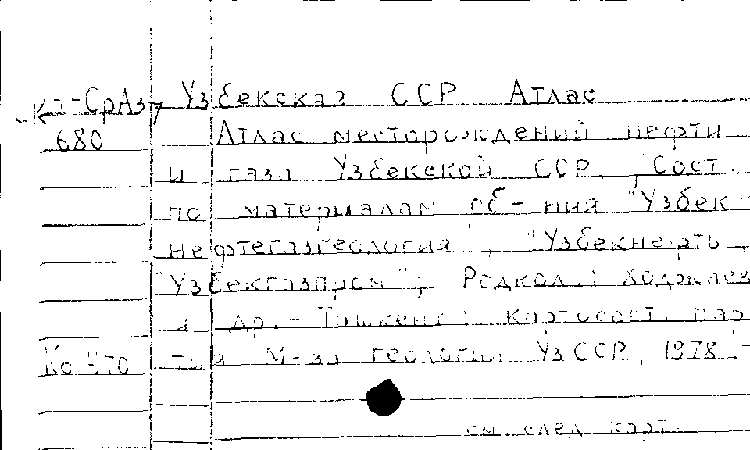 Ко-СрАз7 Узбекская ССР Атлас
680 Атлас месторождений нефти
и газа Узбекской ССР. Сост.
по материалам об-ния "Узбек-
нефтегазгеология", "Узбекнефть",
"Узбекгазпром"; Редкол.: Ходжаев
и др. - Ташкент: Картосост. пар-
Ко-4то тия М-ва геологии УзССР, 1978.-
см. след карт.